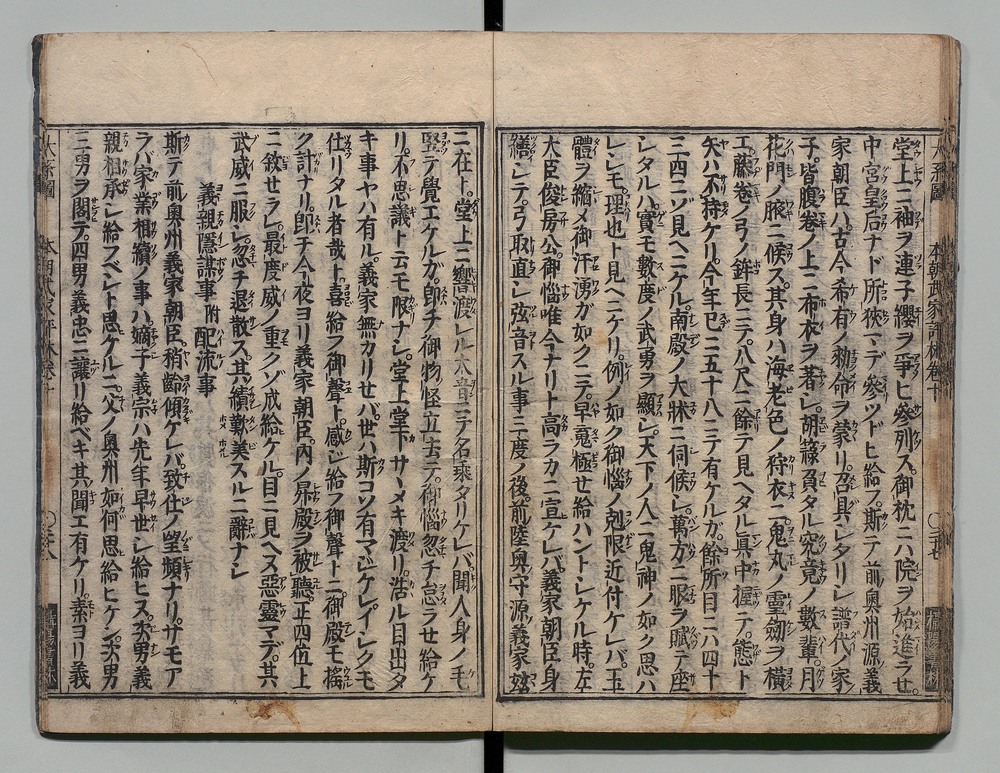 堂上ニ袖ヲ連子纓ヲ爭ヒ參列ス。御枕ニハ院ヲ始進ラセ。
中宮皇后ナド所狹マデ參ツドヒ給フ。斯テ前奥州源義
家朝臣ハ。古今希有ノ勅命ヲ蒙リ。召具シタリシ譜代ノ家
子。皆腹卷ノ上ニ布衣ヲ著シ。胡簶負タル究竟ノ數輩。月
花門ノ腋ニ候ス。其身ハ海老色ノ狩衣ニ。鬼丸ノ靈劔ヲ横
工藤卷ノ弓ノ鉾長ニテ。八尺ニ餘テ見ヘタル眞中握テ。態ト
矢ハ不持ケリ。今年已ニ五十八ニテ有ケルガ。餘所目ニハ四十
三四ニゾ見ヘニケル。南殿ノ大牀ニ伺候シ。萬方ニ眼ヲ賦テ座
シタルハ。實モ數度ノ武勇ヲ顯シ。天下ノ人ニ鬼神ノ如ク思ハ
レシモ。理也ト見ヘニケリ。例ノ如ク御惱ノ剋限近付ケレバ。玉
體ヲ縮メ御汗湧ガ如クニテ。早竟極セ給ハントシケル時。左
大臣俊房公。御惱唯今ナリト。高ラカニ宣ケレバ。義家朝臣身
繕シテ。弓取直シ弦音スル事三度ノ後。前陸奥守源義家玆
ニ在ト。堂上ニ響渡レル大音ニテ名乘タリケレバ。聞人身ノ毛
竪テ覺エケルガ。即チ御物怪立去テ。御惱忽チ怠ラせ給ケ
リ。不思議ト云モ限ナシ。堂上堂下サヾメキ渡リ。浩ル目出タ
キ事ヤハ有ル。義家無カリせバ。世ハ斯コソ有マジケレ。イシクモ
仕リタル者哉ト。喜給フ御聲ト。感ジ給フ御聲トニ。御殿モ搖
ク計ナリ。即チ今夜ヨリ義家朝臣。内ノ昇殿ヲ被聽。正四位上
ニ敘せラレ。最度威ノ重クゾ成給ケル。目ニ見ヘヌ惡靈マデ。其
武威ニ服シ。忽チ退散ス。其績歎美スルニ辭ナシ
義親隱謀事附配流事
斯テ前奥州義家朝臣。稍齡傾ケレバ。致仕ノ望頻ナリ。サモア
ラバ家ノ業相續ノ事ハ。嫡子義宗ハ先年早世シ給ヒヌ。次男義
親相承シ給フベシト思ケルニ。父ノ奥州如何思給ヒケン。次男
三男ヲ閣テ。四男義忠ニ讓リ給ベキ其聞エ有ケリ。素ヨリ義
大系圖
本朝武家評林卷十